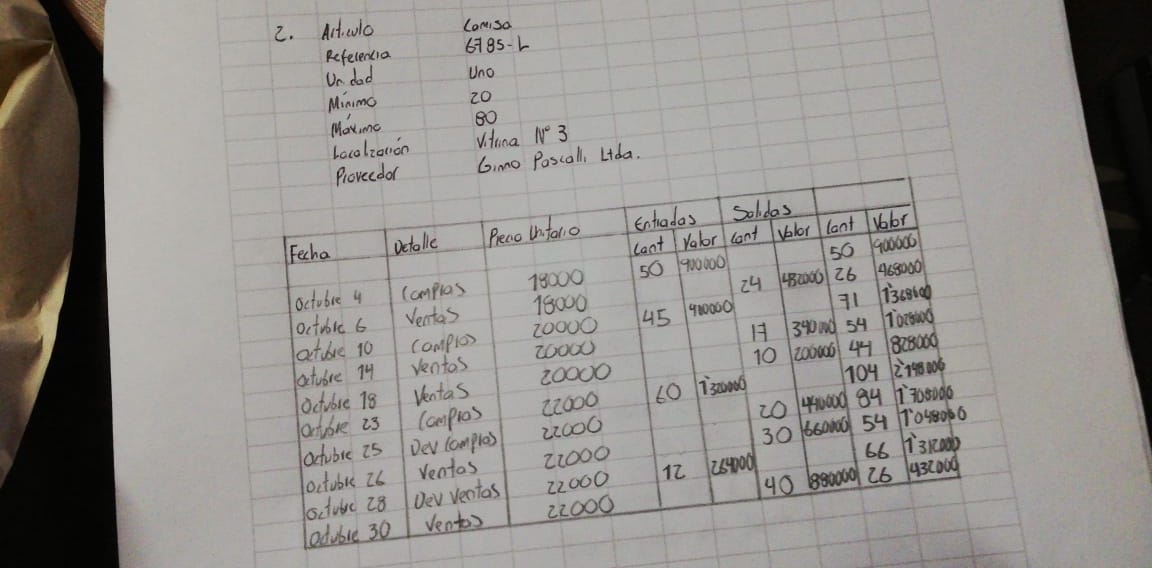 2. Articulo Camisa
Referencia 6785-L
Unidad Uno
Mínimo 20
Máximo 80
Localización Vitrina N° 3
Proveedor Gino Pascalli Ltda.
Fecha Detalle Precio Unitario Entradas Salidas
Cant Valor Cant Valor Cant Valor
Octubre 4 Compras 18000 50 900000 50 900000
Octubre 6 Ventas 18000 24 432000 26 468000
Octubre 10 Compras 20000 45 900000 71 1'368000
Octubre 14 Ventas 20000 17 340000 54 1'028000
Octubre 18 Ventas 20000 10 200000 44 828000
Octubre 23 Compras 22000 60 1'320000 104 2'148000
Octubre 25 Dev Compras 22000 20 440000 84 1'708000
Octubre 26 Ventas 22000 30 660000 54 1'048000
Octubre 28 Dev Ventas 22000 12 264000 66 1'312000
Octubre 30 Ventas 22000 40 880000 26 432000